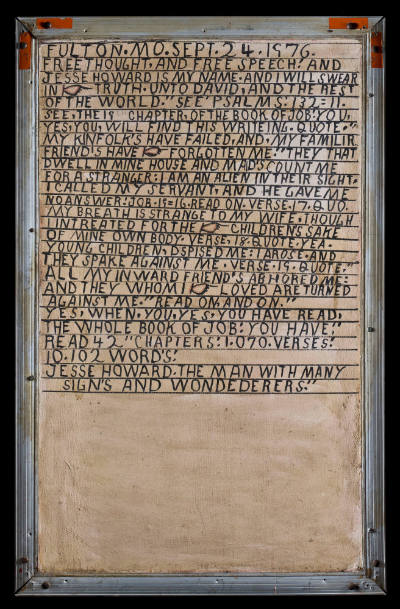 FULTON. MO. SEPT. 24. 1976.
FREETHOUGHT. AND FREE SPEECH! AND
JESSE HOWARD IS MY NAME. AND I WILL SWEAR
IN TRUTH. UNTO DAVID, AND THE REST
OF THE WORLD. SEE PSALMS: 132=11.
SEE, THE 19 CHAPTER, OF THE BOOK OF JOB: YOU,
YES, YOU, WILL FIND THIS WRITEING. QUOTE."
MY KINFOLK'S HAVE FAILED, AND, MY FAMILIR
FRIEND'S HAVE FORGOTTEN ME: "THEY THAT
DWELL IN MINE HOUSE AND MAID'S COUNT ME
FOR A STRANGER: I AM AN ALIEN IN THEIR SIGHT.
I CALLED MY SERVANT, AND HE GAVE ME
NO ANSWER: JOB. 19=16. READ ON. VERSE. 17. QUO.
MY BREATH IS STRANGE TO MY WIFE, THOUGH
I INTREATED FOR THE CHILDREN'S SAKE
OF MINE OWN BODY. VERSE, 18. QUOTE, YEA.
YOUNG CHILDREN, DSPISED ME: I AROSE. AND
THEY SPAKE AGAINST ME. VERSE. 19. QUOTE,"
ALL MY INWARD FRIEND'S ABHORED ME:
AND THEY WHOM I LOVED ARE TURNED
AGAINST ME. "READ ON, AND ON."
YES, WHEN, YOU, YES, YOU HAVE READ,
THE WHOLE BOOK OF JOB: YOU HAVE:"
READ 42 "CHAPTERS: 1.070. VERSES:
10.102 WORD'S:
JESSE HOWARD. THE MAN WITH MANY
SIGN'S AND WONDEDERERS."